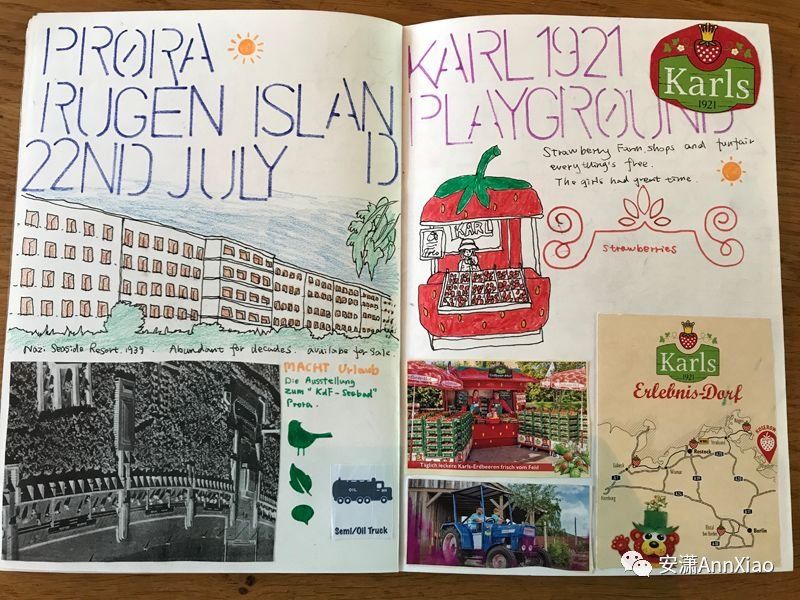 PRØRA
RUGEN ISLAN
D
22ND JULY
Nazi Seaside Resort. 1939. Abundant for decades. availabe for sale.
MACHT Urlaub
Die Ausstellung
zum "KdF-Seebad"
Prora.
OIL
Semi/Oil Truck
KARL 1921
PLAYGROUND
Karls
1921
Strawberry Farm, shops and funfair
everything's free.
The girls had great time.
KARL
strawberries
Täglich leckere Karls-Erdbeeren frisch vom Feld
Karls
1921
Erlebnis-Dorf
KOSEROW
Rostock
Lübeck
Wismar
Hamburg
Berlin
安潇AnnXiao